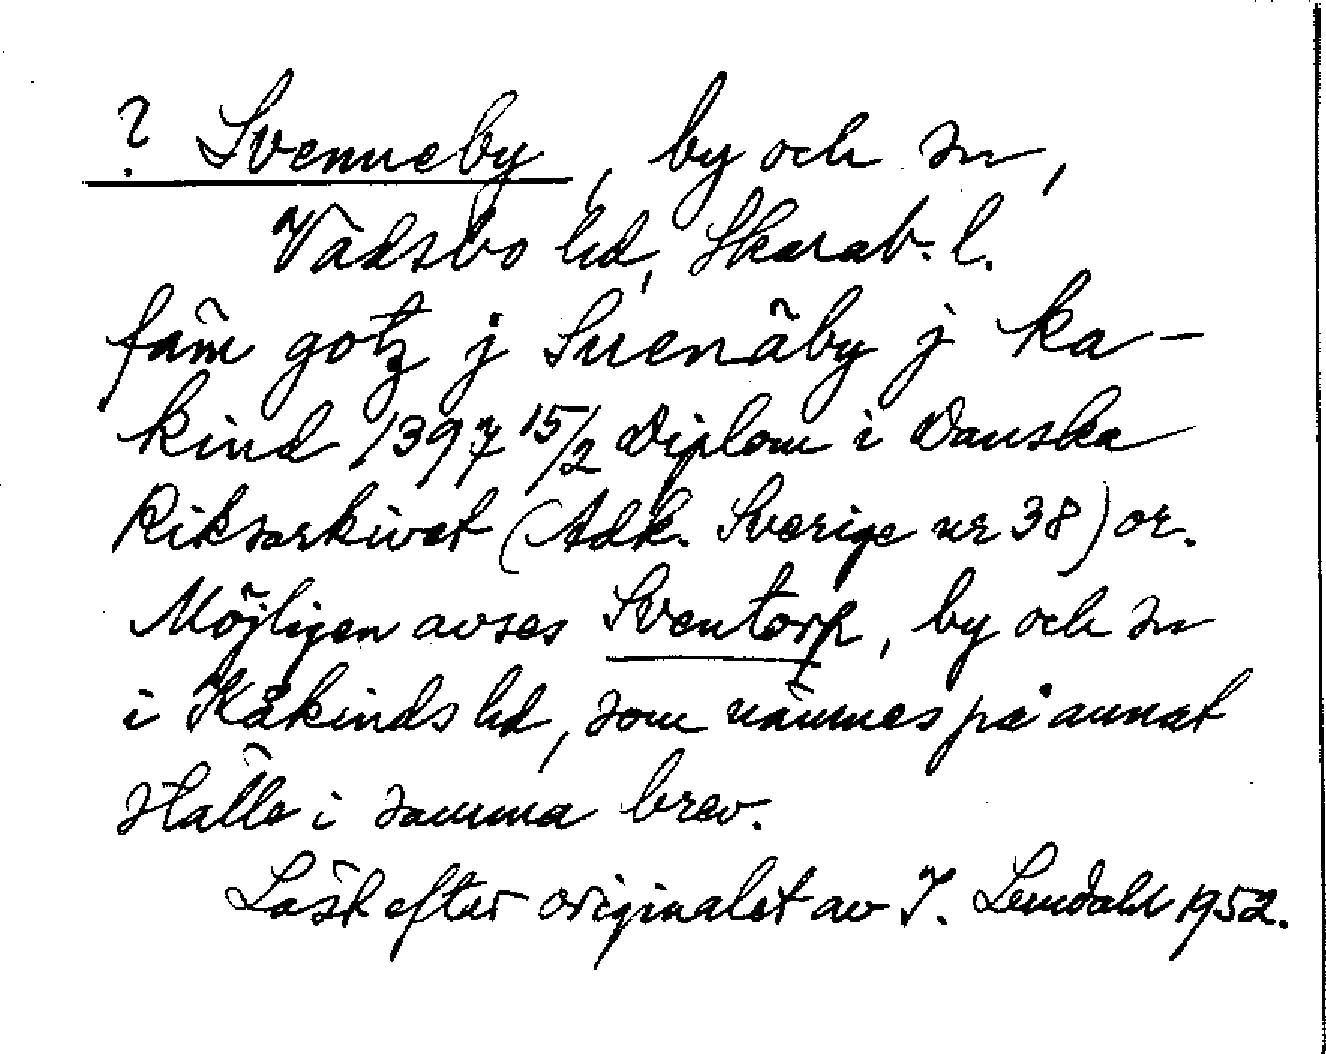 ? Svenneby, by och sn,
Vadsbo hd, Skarab. l.
fäm gotz j Suenäby j ka-
kind 1397 15/2 Diplom i Danska
Riksarkivet (Adk. Sverige nr 38) or.
Möjligen avses Sventorp, by och sn
i Kåkinds hd, som nämnes på annat
ställe i samma brev.
Läst efter originalet av I. Lundahl 1952.